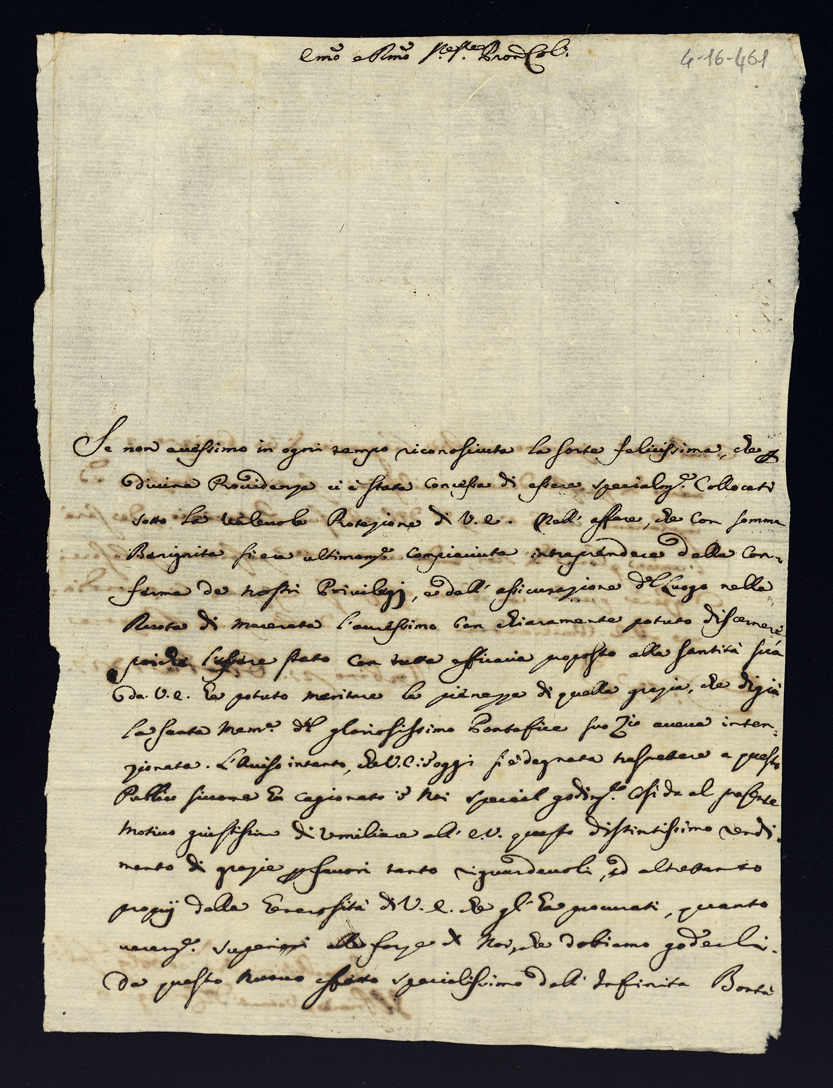 Emo e Rmo Sre Sre Pron Col.
4-16-461
Se non auessimo in ogni tempo riconosciuta la sorte felicissima, che
diuina Prouidenza ci è stata concessa di essere specialmte. Collocati
sotto la ualeuole Protezione di V. E. Nell' affare, che con somma
Benignità si era ultimamte. compiaciuta intraprendere della Con=
ferma de nostri Privilegj, e dell' assicurazione del Luogo nella
Ruota di Macerata l'auressimo ben chiaramente potuto discernere
poiche l'essere stato con tutta efficacia proposto alla Santità sua
da V. E. ha potuto meritare la pienezza di quella grazia, che di già
la Santa Mema. del gloriosissimo Pontefice suo Zio aueua inten=
zionata. L'Auiso intanto, che V. E. oggi si è degnata trasmettere a questo
Publico siccome ha cagionato in Noi special godimto. Così dà al presente
motiuo giustissimo di umiliare all' E. V. questo distintissimo rendi=
mento di grazie per fauori tanto riguardeuoli, ed altretanto
proprij della Generosità di V. E. che gl' ha procurati, quanto
ueramte. superiori alle forze di Noi, che dobiamo goderli.
Da questo nuouo effetto specialissimo dell' Infinita Bontà